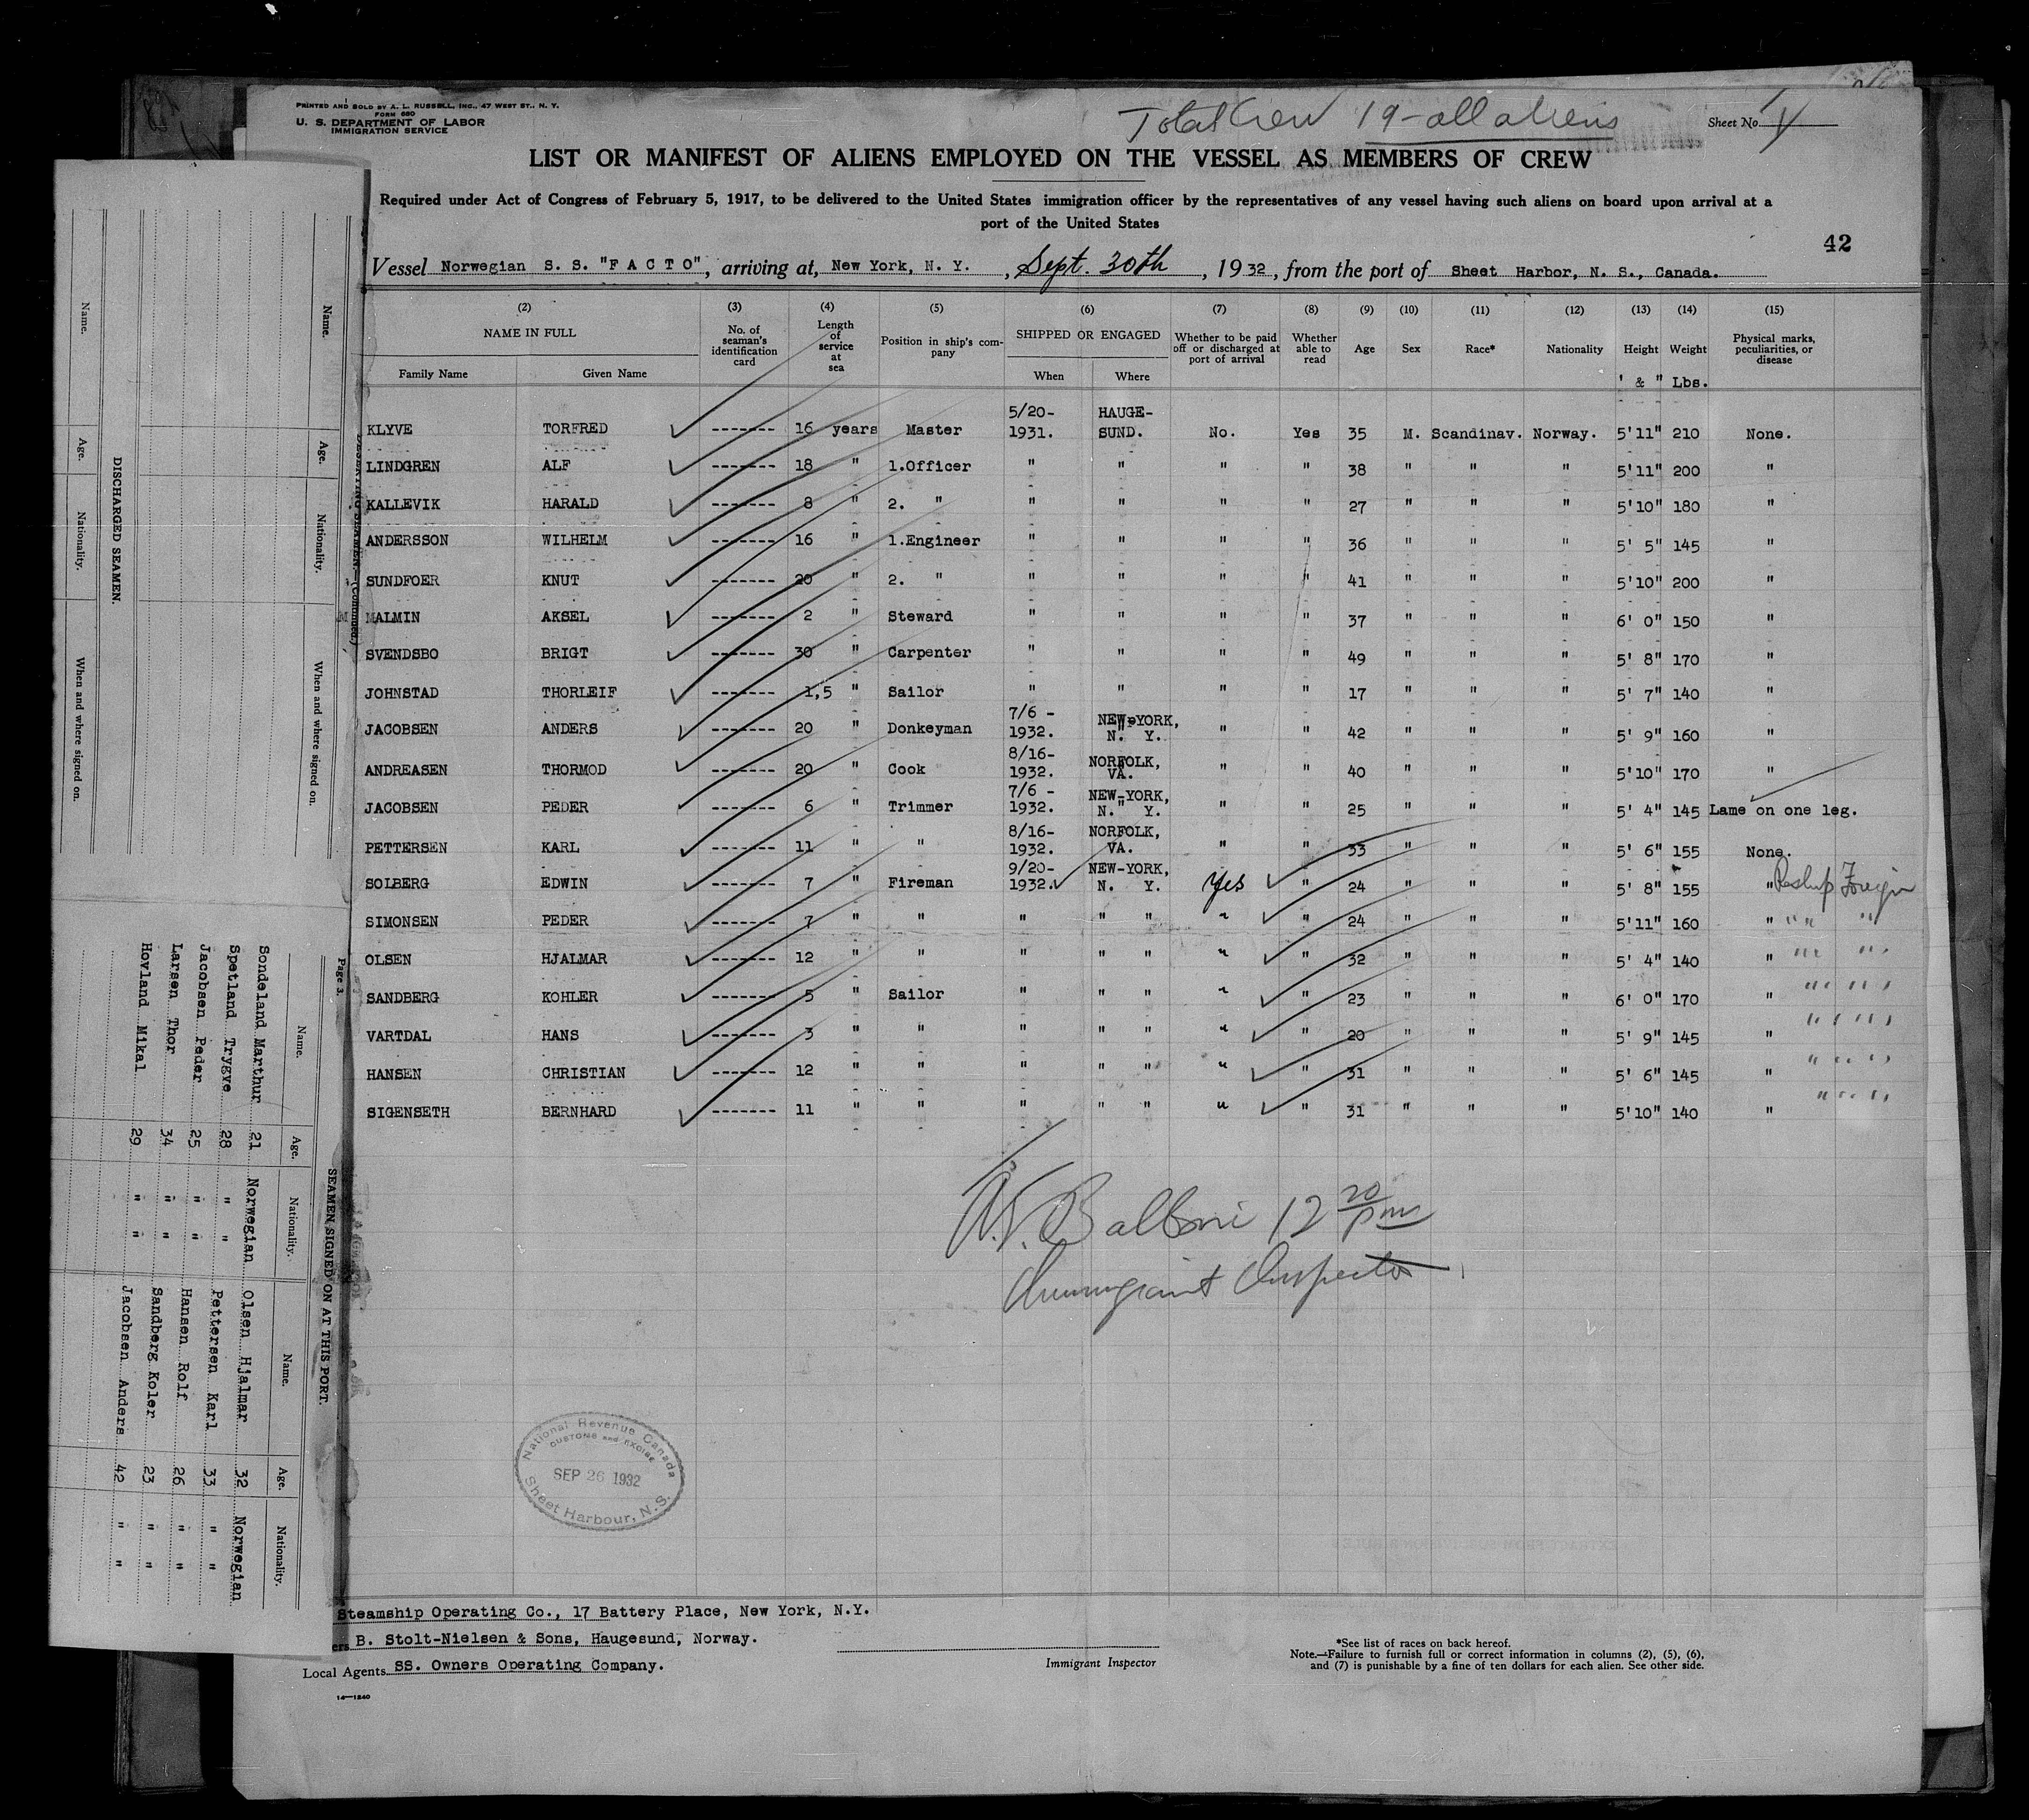 PRINTED AND SOLD BY A. L. RUSSELL, INC., 47 WEST ST., N. Y.
FORM 680
U. S. DEPARTMENT OF LABOR
IMMIGRATION SERVICE
Total Crew 19 - all aliens
Sheet No. 1
LIST OR MANIFEST OF ALIENS EMPLOYED ON THE VESSEL AS MEMBERS OF CREW
Required under Act of Congress of February 5, 1917, to be delivered to the United States immigration officer by the representatives of any vessel having such aliens on board upon arrival at a
port of the United States
42
Vessel Norwegian S. S. "F A C T O", arriving at, New York, N. Y., Sept. 30th, 1932, from the port of Sheet Harbor, N. S., Canada.
(2) (3) (4) (5) (6) (7) (8) (9) (10) (11) (12) (13) (14) (15)
NAME IN FULL No. of seaman's identification card Length of service at sea Position in ship's company SHIPPED OR ENGAGED Whether to be paid off or discharged at port of arrival Whether able to read Age Sex Race* Nationality Height Weight Physical marks, peculiarities, or disease
Family Name Given Name When Where ' & " Lbs.
KLYVE TORFRED ------- 16 years Master 5/20-1931. HAUGE-SUND. No. Yes 35 M. Scandinav. Norway. 5'11" 210 None.
LINDGREN ALF ------- 18 " 1.Officer " " " " 38 " " " 5'11" 200 "
KALLEVIK HARALD ------- 8 " 2. " " " " " 27 " " " 5'10" 180 "
ANDERSSON WILHELM ------- 16 " 1.Engineer " " " " 36 " " " 5' 5" 145 "
SUNDFOER KNUT ------- 20 " 2. " " " " " 41 " " " 5'10" 200 "
MALMIN AKSEL ------- 2 " Steward " " " " 37 " " " 6' 0" 150 "
SVENDSBO BRIGT ------- 30 " Carpenter " " " " 49 " " " 5' 8" 170 "
JOHNSTAD THORLEIF ------- 1,5 " Sailor " " " " 17 " " " 5' 7" 140 "
JACOBSEN ANDERS ------- 20 " Donkeyman 7/6 -1932. NEW-YORK, N. Y. " " 42 " " " 5' 9" 160 "
ANDREASEN THORMOD ------- 20 " Cook 8/16-1932. NORFOLK, VA. " " 40 " " " 5'10" 170 "
JACOBSEN PEDER ------- 6 " Trimmer 7/6 -1932. NEW-YORK, N. Y. " " 25 " " " 5' 4" 145 Lame on one leg.
PETTERSEN KARL ------- 11 " " 8/16-1932. NORFOLK, VA. " " 33 " " " 5' 6" 155 None.
SOLBERG EDWIN ------- 7 " Fireman 9/20-1932. NEW-YORK, N. Y. Yes " 24 " " " 5' 8" 155 " Reship Foreign
SIMONSEN PEDER ------- 7 " " " " " " " 24 " " " 5'11" 160 " " " "
OLSEN HJALMAR ------- 12 " " " " " " " 32 " " " 5' 4" 140 " " " "
SANDBERG KOHLER ------- 5 " Sailor " " " " " 23 " " " 6' 0" 170 " " " "
VARTDAL HANS ------- 3 " " " " " " " 20 " " " 5' 9" 145 " " " "
HANSEN CHRISTIAN ------- 12 " " " " " " " 31 " " " 5' 6" 145 " " " "
SIGENSETH BERNHARD ------- 11 " " " " " " " 31 " " " 5'10" 140 " " " "
Balboni 12 20 pm
Immigrant Inspector
National Revenue Canada
CUSTOMS and EXCISE
SEP 26 1932
Sheet Harbour, N.S.
Steamship Operating Co., 17 Battery Place, New York, N.Y.
ers B. Stolt-Nielsen & Sons, Haugesund, Norway.
Local Agents SS. Owners Operating Company.
Immigrant Inspector
*See list of races on back hereof.
Note.—Failure to furnish full or correct information in columns (2), (5), (6),
and (7) is punishable by a fine of ten dollars for each alien. See other side.
14—1240
DESERTING SEAMEN.—(Continued.)
Name. Age. Nationality. When and where signed on.
DISCHARGED SEAMEN.
Name. Age. Nationality. When and where signed on.
Page 3.
SEAMEN SIGNED ON AT THIS PORT.
Name. Age. Nationality. Name. Age. Nationality.
Sondeland Marthur 21 Norwegian Olsen Hjalmar 32 Norwegian
Spetland Trygve 28 " " Pettersen Karl 33 " "
Jacobsen Peder 25 " " Hansen Rolf 26 " "
Larsen Thor 34 " " Sandberg Koler 23 " "
Hovland Mikal 29 " " Jacobsen Anders 42 " "